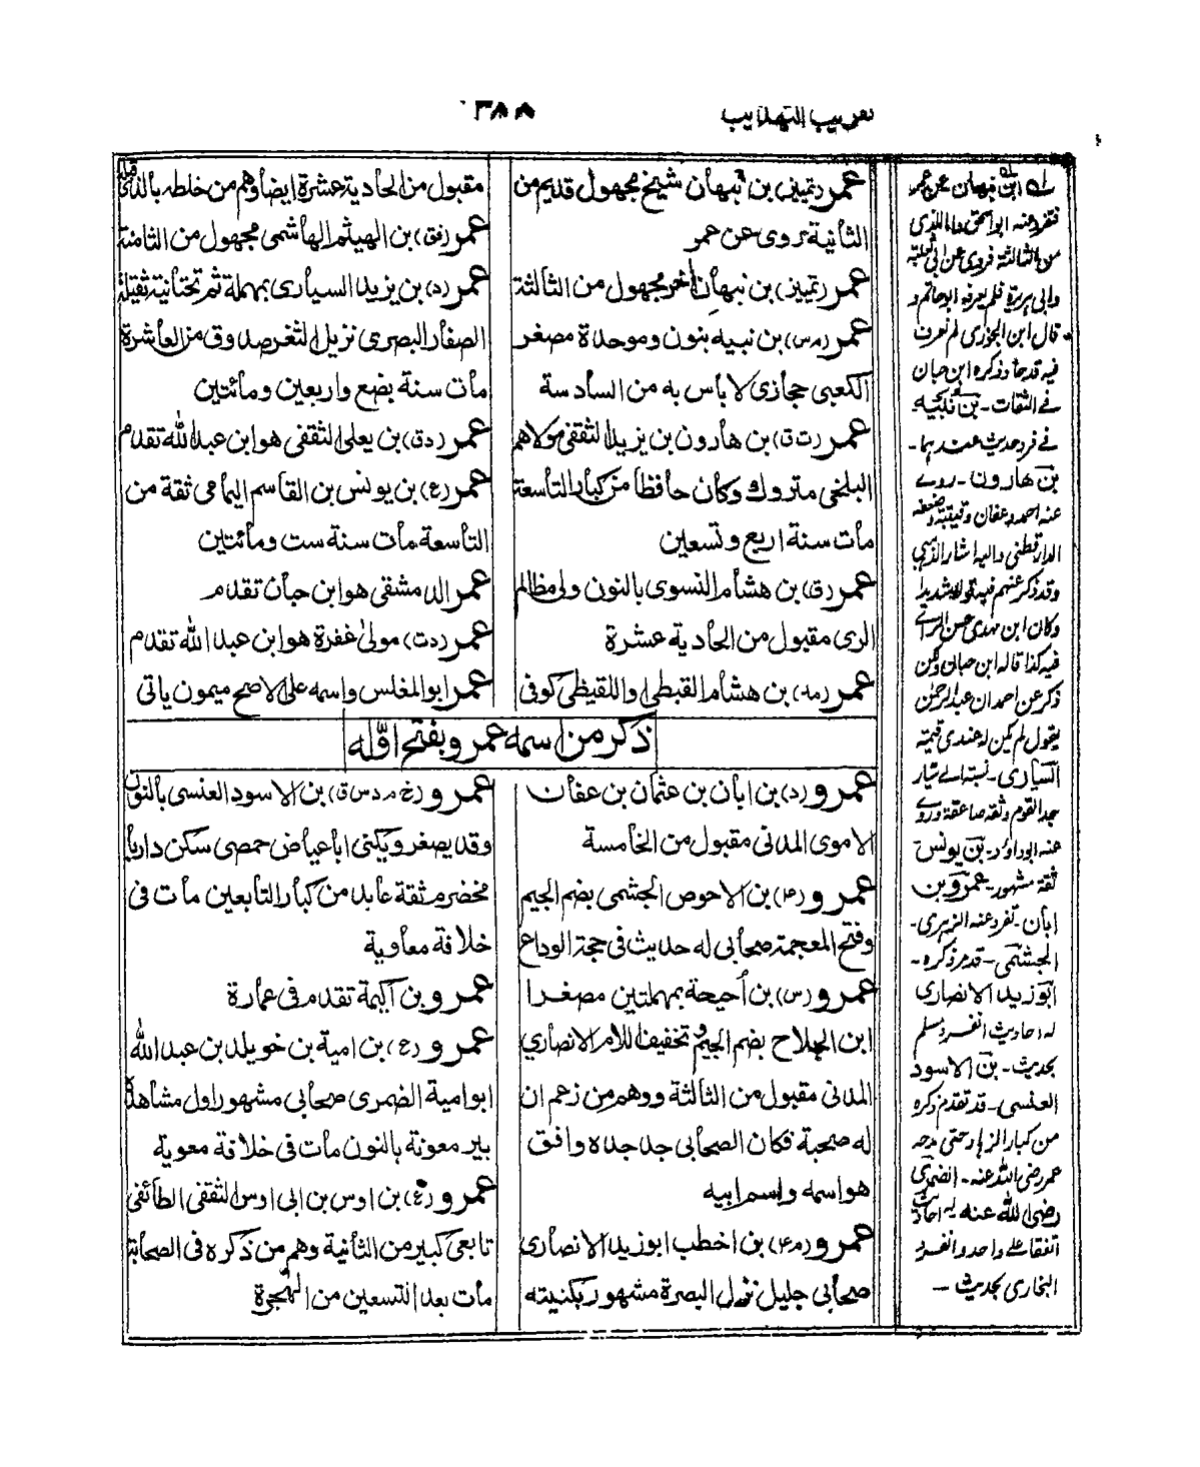 تقريب التهذيب
٣٨٨
عمر (تمييز) بن نبهان شيخ مجهول قديم من
الثانية روى عن عمر
عمر (تمييز) بن نبهان آخر مجهول من الثالثة
عمر (مدس) بن نبيه بنون وموحدة مصغر
الكعبى حجازى لا باس به من السادسة
عمر (ت ق) بن هارون بن يزيد الثقفى مولاهم
البلخى متروك وكان حافظا من كبار التاسعة
مات سنة اربع وتسعين
عمر (ق) بن هشام النسوى بالنون ولى مظالم
الرى مقبول من الحادية عشرة
عمر (مد) بن هشام القبطى او اللقيظى كوفى
مقبول من الحادية عشرة ايضا وهم من خلطه بالذى قبله
عمر (فق) بن الهيثم الهاشمى مجهول من الثامنة
عمر (د) بن يزيد السيارى بمهملة ثم تحتانية ثقيلة
الصفار البصرى نزيل الثغر صدوق من العاشرة
مات سنة بضع واربعين ومائتين
عمر (دق) بن يعلى الثقفى هو ابن عبد الله تقدم
عمر (ع) بن يونس بن القاسم اليمامى ثقة من
التاسعة مات سنة ست ومائتين
عمر الدمشقى هو ابن حبان تقدم
عمر (دت) مولى غفرة هو ابن عبد الله تقدم
عمر ابو المغلس واسمه على الاصح ميمون ياتى
ذكر من اسمه عمرو بفتح اوّله
عمرو (د) بن ابان بن عثمان بن عفان
الاموى المدنى مقبول من الخامسة
عمرو (ع۴) بن الاحوص الجشمى بضم الجيم
وفتح المعجمة صحابى له حديث فى حجة الوداع
عمرو (س) بن أحيحة بمهملتين مصغرا
ابن الجلاح بضم الجيم وتخفيف اللام الانصاري
المدنى مقبول من الثالثة ووهم من زعم ان
له صحبة فكان الصحابى جد جده وافق
هو اسمه واسم ابيه
عمرو (م۴) بن اخطب ابو زيد الانصارى
صحابى جليل نزل البصرة مشهور بكنيته
عمرو (خ م د س ق) بن الاسود العنسى بالنون
وقد يصغر ويكنى ابا عياض حمصى سكن داريا
مخضرم ثقة عابد من كبار التابعين مات فى
خلافة معاوية
عمرو بن اكيمة تقدم فى عمارة
عمرو (ع) بن امية بن خويلد بن عبد الله
ابو امية الضمرى صحابى مشهور اول مشاهده
بير معونة بالنون مات فى خلافة معوية
عمرو (ع) بن اوس بن ابى اوس الثقفى الطائفى
تابعى كبير من الثانية وهم من ذكره فى الصحابة
مات بعد التسعين من الهجرة
له ابن نبهان عن عمر
تفرد عنه ابو اسحق واما الذى
من الثالثة فروى عن ابى ثعلبة
وابى هريرة فلم يعرفه ابو حاتم و
قال ابن الجوزى لم نعرف
فيه قدحا وذكره ابن حبان
فے الثقات ـ بن نبيه
فے فرد حديث عندهما ـ
بن هارون ـ روے
عنه احمد وعفان وقتيبة وضعفه
الدارقطنى واليه اشار الذهبى
وقد ذكر عنهم فيه قولا شديدا
وكان ابن مهدى حسن الراے
فيه كذا قاله ابن حبان ولكن
ذكر عن احمد ان عبد الرحمن
يقول لم يكن له عندى قيمة
السيارى ـ نسبة الے سيار
جد القوم وثقه صاعقة وروے
عنه ابو داود ـ بن يونس
ثقة مشهور ـ عمرو بن
ابان ـ تفرد عنه الزهرى ـ
الجشمى ـ قد مر ذكره ـ
ابو زيد الانصارى
له احاديث انفرد مسلم
بحديث ـ بن الاسود
العنسى ـ قد تقدم ذكره
من كبار الزهاد حتى مدحه
عمر رضى الله عنه ـ الضمرى
رضى الله عنه له احاديث
اتفقا علے واحد وانفرد
البخارى بحديث ـ